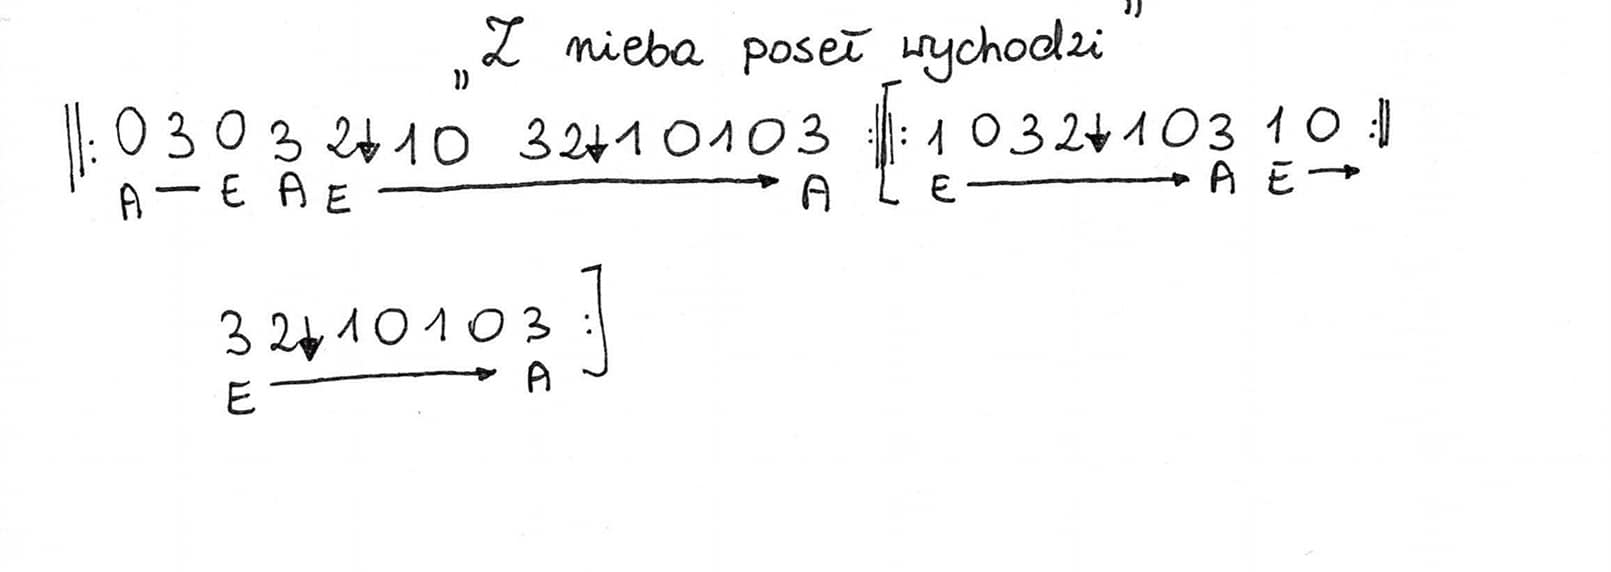 „Z nieba poseł wychodzi”
||: 0 3 0 3 2↓10 32↓10103 :||[: 1 032↓103 10 :||
A — E A E → A E → A E →
32↓10103 :]
E → A